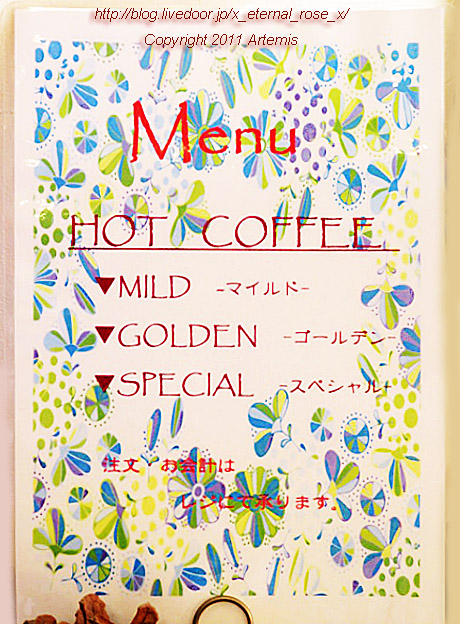 http://blog.livedoor.jp/x_eternal_rose_x/
Copyright 2011 Artemis
Menu
HOT COFFEE
▼MILD -マイルド-
▼GOLDEN -ゴールデン-
▼SPECIAL -スペシャル-
注文・お会計は
レジにて承ります。